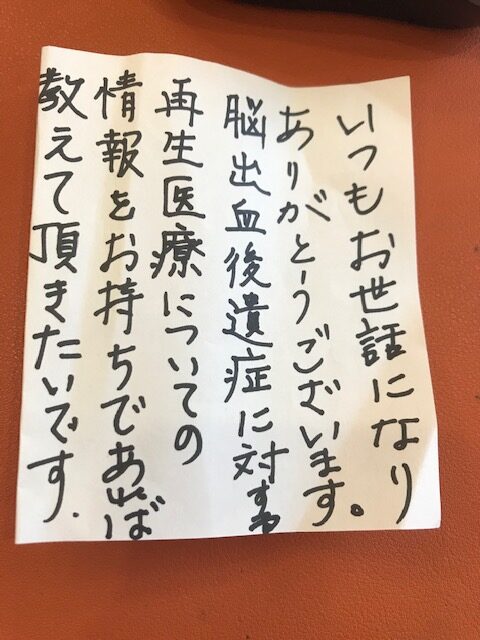 いつもお世話になり
ありがとうございます。
脳出血後遺症に対する
再生医療についての
情報をお持ちであれば
教えて頂きたいです.